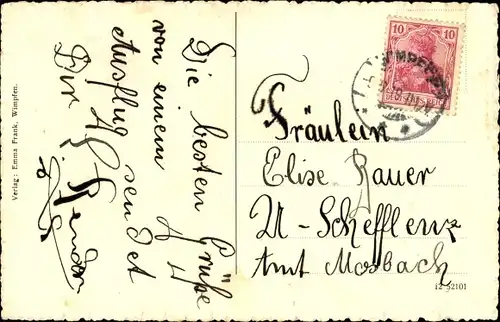 Die besten Grüße
von einem
Ausflug sendet
Dir
Verlag: Emma Frank, Wimpfen.
10 10
WIMPFEN
Fräulein
Elise Bauer
U-Schefflenz
Amt Mosbach
12 52101